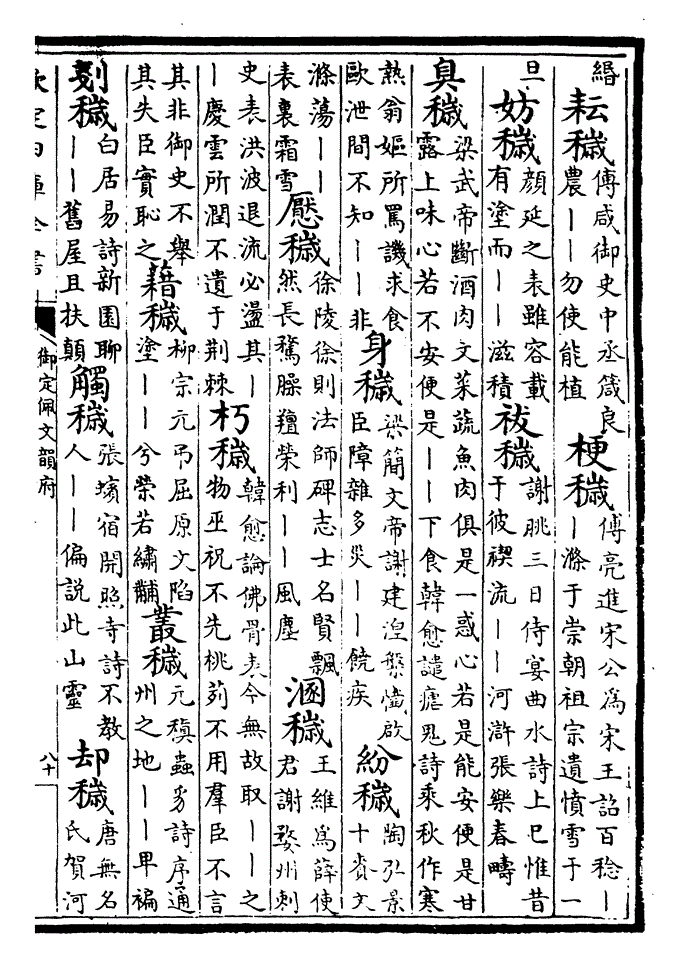 緡
耘穢
傅咸御史中丞箴良
農丨丨勿使能植
梗穢
傅亮進宋公為宋王詔百稔丨
丨滌于崇朝祖宗遺憤雪于一
旦
妨穢
顔延之表雖容載
有塗而丨丨滋積
祓穢
謝朓三日侍宴曲水詩上巳惟昔
于彼禊流丨丨河滸張樂春疇
臭穢
梁武帝斷酒肉文菜蔬魚肉俱是一惑心若是能安便是甘
露上味心若不安便是丨丨下食韓愈譴瘧鬼詩乘秋作寒
熱翁嫗所罵譏求食
歐泄間不知丨丨非
身穢
梁簡文帝謝建湼槃懺啟
臣障雜多災丨丨饒疾
紛穢
陶弘景
十賚文
滌蕩丨丨
表裏霜雪
懕穢
徐陵徐則法師碑志士名賢飄
然長騖臊羶榮利丨丨風塵
溷穢
王維為薛使
君謝婺州刺
史表洪波退流必盪其丨
丨慶雲所潤不遺于荆棘
朽穢
韓愈論佛骨表今無故取丨丨之
物巫祝不先桃茢不用羣臣不言
其非御史不舉
其失臣實恥之
藉穢
柳宗元弔屈原文陷
塗丨丨兮榮若繡黼
叢穢
元稹蟲豸詩序通
州之地丨丨卑褊
剗穢
白居易詩新園聊
丨丨舊屋且扶顛
觸穢
張蠙宿開照寺詩不教
人丨丨偏說此山靈
却穢
唐無名
氏賀河
欽定四庫全書
御定佩文韻府
八十